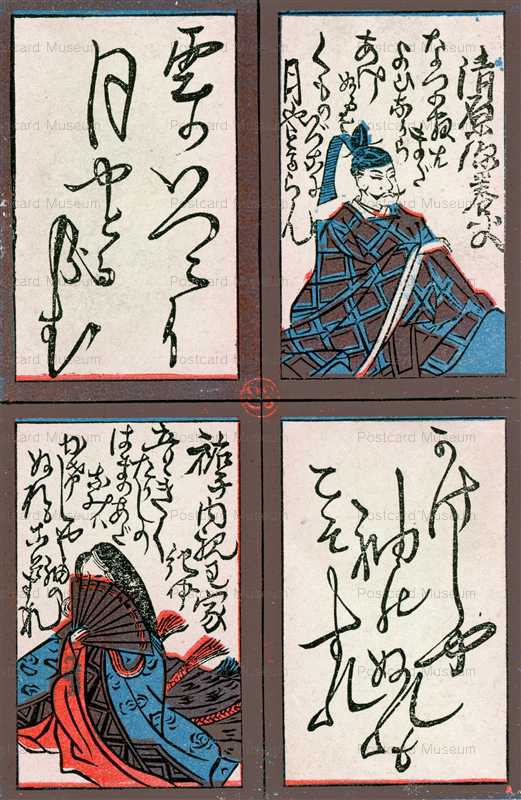 清原深養父
なつの夜は
まだ
よひながら
あけ
ぬるを
くものいづこに
月やどるらん
雲のいつこに
月やとるらむ
かけしや
袖のぬれも
こそ
すれ
祐子内親王家
紀伊
音にきく
たかしの
はまのあだ
なみは
かけじや袖の
ぬれもこそすれ
Postcard Museum